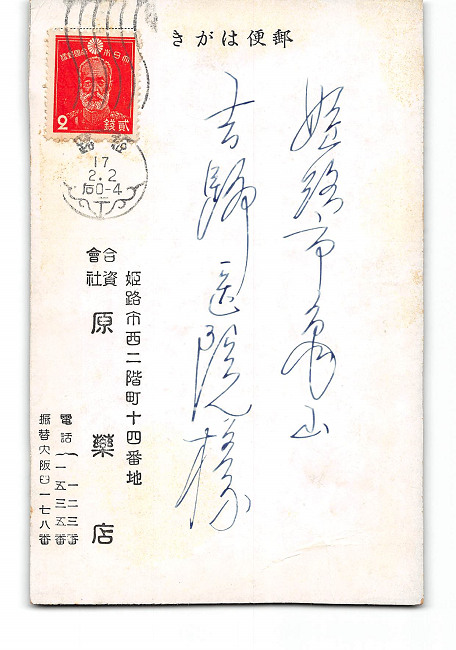 きがは便郵
大日本帝國郵便
2
貳錢
17
2.2
后0-4
姫路市亀山
吉野医院様
姫路市西二階町十四番地
合資
會社
原藥店
電話
一二三番
一五三五番
振替大阪四一七八番